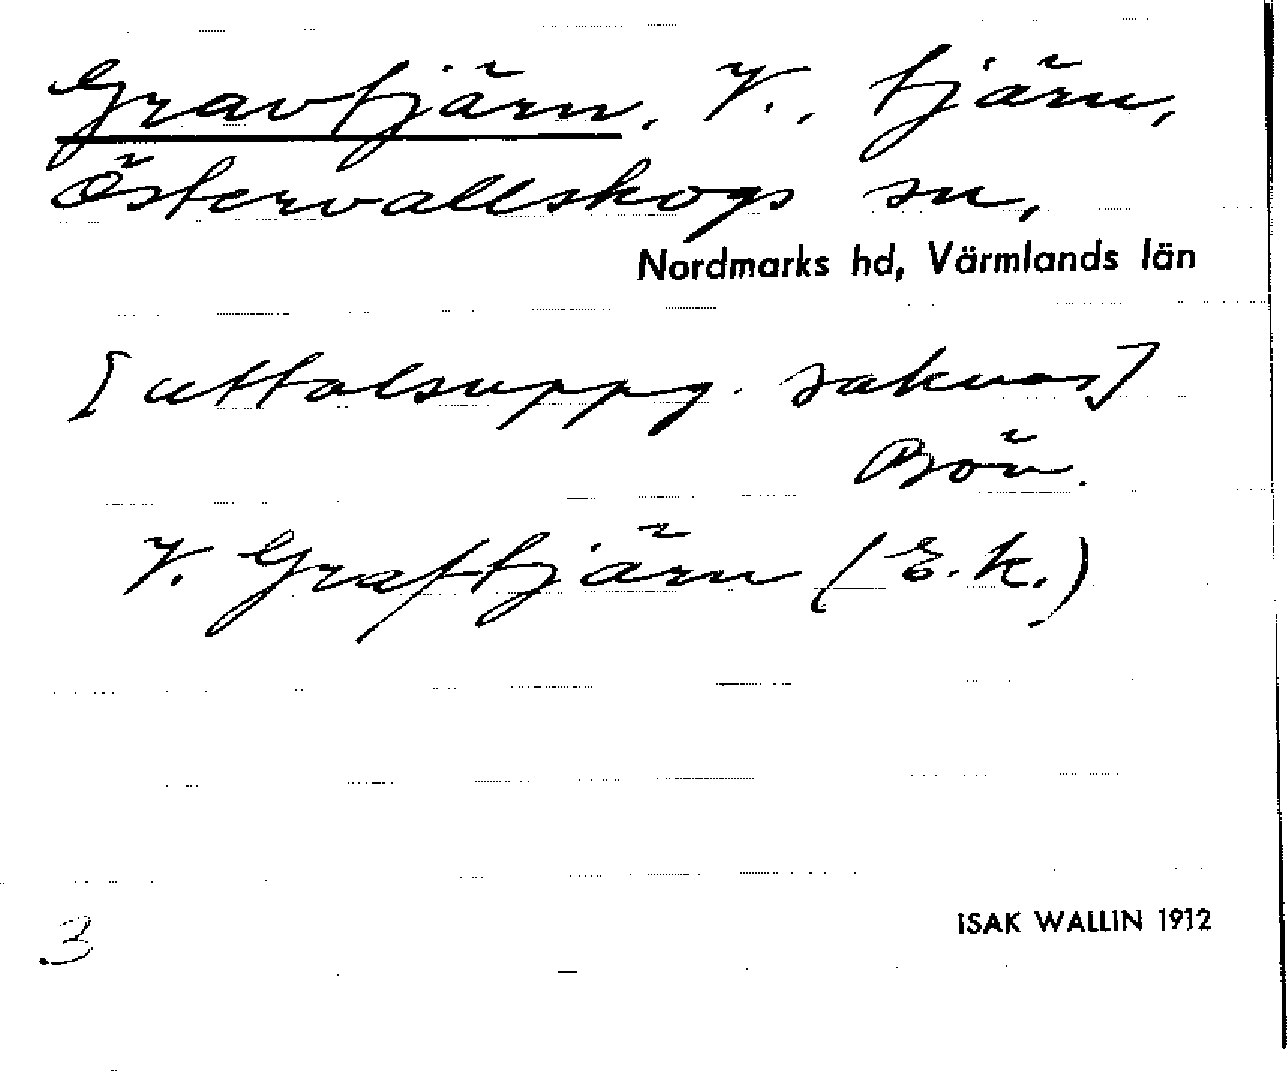 Gravtjärn, V., tjärn,
Östervallskogs sn,
Nordmarks hd, Värmlands län
[uttalsuppg. saknas]
V. Graftjärn (E.k.)
3
ISAK WALLIN 1912